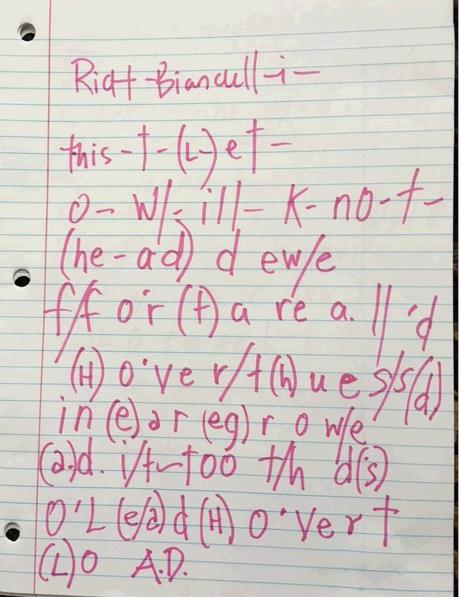 Riat Biancull-i-
this-t-(L-)et-
o- W/-ill- K-no-t-
(he-ad) d ew/e
f/f or(t) a re a. ll 'd
(H) o've r/t(h)ue s/s(d)
in(e)ar(eg)r ow/e
(a.)d. i/t-too t/h d(s)
O'L(e/a)d(H) o'ver t
(L)O A.D.